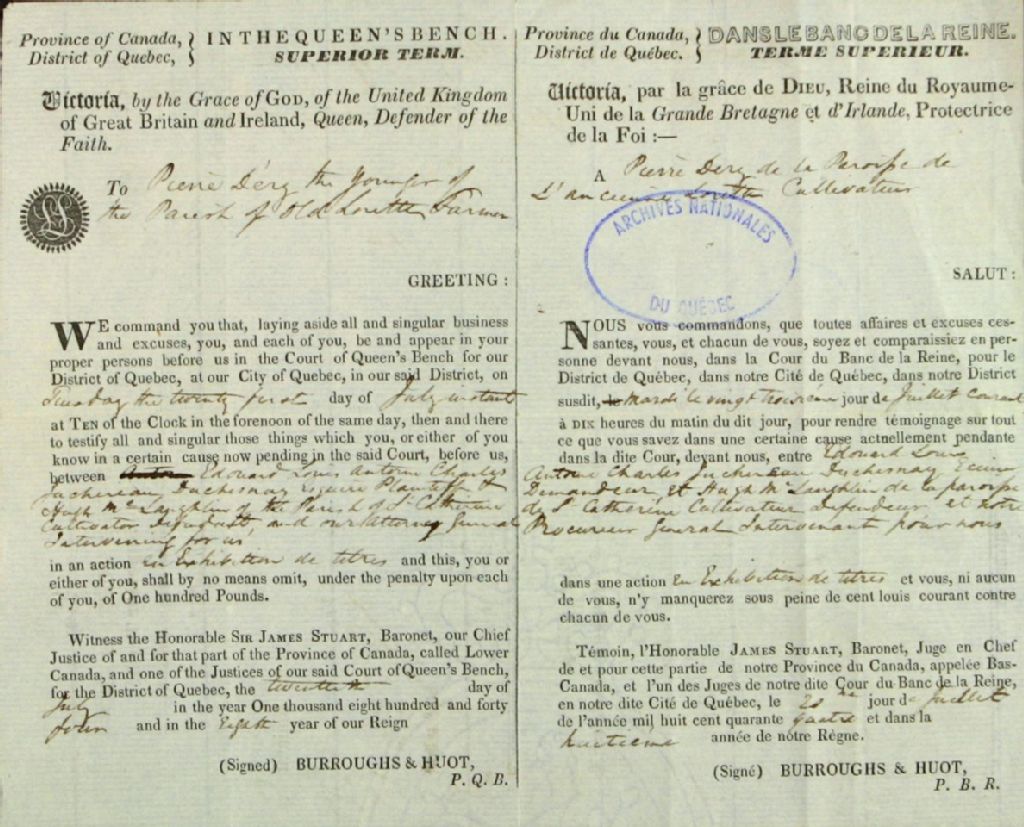 Province of Canada,
District of Quebec,
IN THE QUEEN'S BENCH.
SUPERIOR TERM.
Victoria, by the Grace of GOD, of the United Kingdom
of Great Britain and Ireland, Queen, Defender of the
Faith.
To Pierre Dery the Younger of
the Parish of Old Lorette Farmer
GREETING :
WE command you that, laying aside all and singular business
and excuses, you, and each of you, be and appear in your
proper persons before us in the Court of Queen's Bench for our
District of Quebec, at our City of Quebec, in our said District, on
Tuesday the twenty first day of July instant
at TEN of the Clock in the forenoon of the same day, then and there
to testify all and singular those things which you, or either of you
know in a certain cause now pending in the said Court, before us,
between Edouard Louis Antoine Charles
Juchereau Duchesnay Esquire Plaintiff &
Hugh McLaughlin of the Parish of St Catherine
Cultivator Defendant and our Attorney General
Intervening for us
in an action en Exhibition de titres and this, you or
either of you, shall by no means omit, under the penalty upon each
of you, of One hundred Pounds.
Witness the Honorable SIR JAMES STUART, Baronet, our Chief
Justice of and for that part of the Province of Canada, called Lower
Canada, and one of the Justices of our said Court of Queen's Bench,
for the District of Quebec, the twentieth day of
July in the year One thousand eight hundred and forty
four and in the Eighth year of our Reign
(Signed) BURROUGHS & HUOT,
P. Q. B.
Province du Canada,
District de Québec.
DANS LE BANC DE LA REINE.
TERME SUPERIEUR.
Victoria, par la grâce de DIEU, Reine du Royaume-
Uni de la Grande Bretagne et d'Irlande, Protectrice
de la Foi :—
A Pierre Dery de la Paroisse de
L'ancienne Lorette Cultivateur
ARCHIVES NATIONALES
DU QUÉBEC
SALUT :
NOUS vous commandons, que toutes affaires et excuses ces-
santes, vous, et chacun de vous, soyez et comparaissiez en per-
sonne devant nous, dans la Cour du Banc de la Reine, pour le
District de Québec, dans notre Cité de Québec, dans notre District
susdit, Mardi le vingt troisieme jour de Juillet courant
à DIX heures du matin du dit jour, pour rendre témoignage sur tout
ce que vous savez dans une certaine cause actuellement pendante
dans la dite Cour, devant nous, entre Edouard Louis
Antoine Charles Juchereau Duchesnay Ecuier
Demandeur, et Hugh McLaughlin de la paroisse
de St Catherine Cultivateur defendeur et notre
Procureur General Intervenant pour nous
dans une action En Exhibition de titres et vous, ni aucun
de vous, n'y manquerez sous peine de cent louis courant contre
chacun de vous.
Témoin, l'Honorable JAMES STUART, Baronet, Juge en Chef
de et pour cette partie de notre Province du Canada, appelée Bas-
Canada, et l'un des Juges de notre dite Cour du Banc de la Reine,
en notre dite Cité de Québec, le 20me jour de Juillet
de l'année mil huit cent quarante quatre et dans la
huitieme année de notre Règne.
(Signé) BURROUGHS & HUOT,
P. B. R.